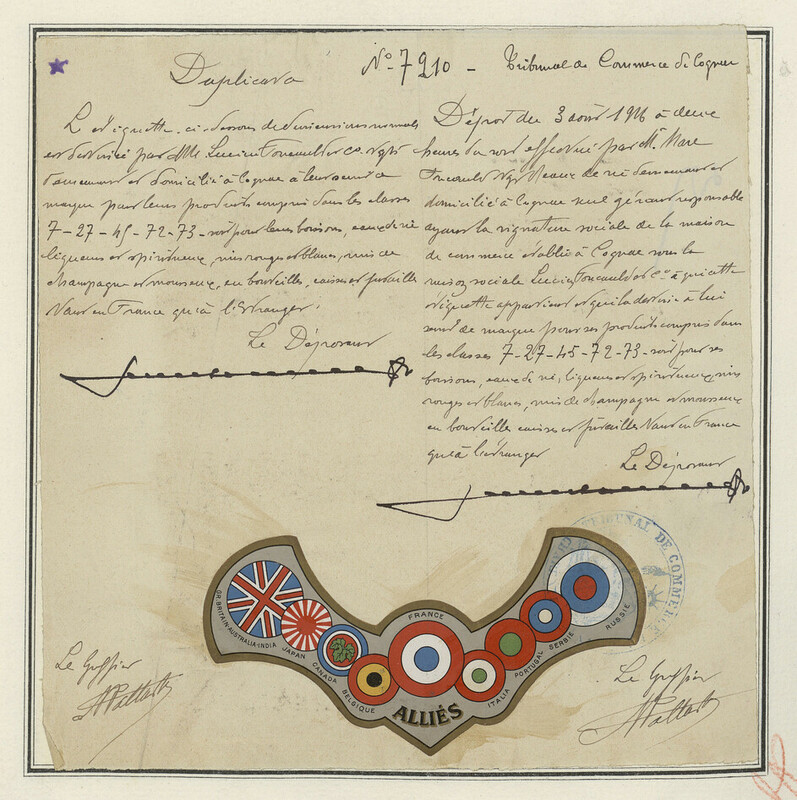 Duplicata
N° 7210 - Tribunal de Commerce de Cognac
L'étiquette ci-dessous de dimensions normales
est destinée par MM. Lucien Foucauld et Co. Ngts
demeurant et domiciliés à Cognac à leur servir de
marque pour leurs produits compris dans les classes
7-27-45-72-73- soit pour leurs boissons, eaux de vie
liqueurs et spiritueux, vins rouges et blancs, vins de
champagne et mousseux, en bouteilles, caisses et futailles
tant en France qu'à l'étranger.
Le Déposant
Dépôt du 3 août 1916 à deux
heures du soir effectué par M. Marc
Foucauld Ngt d'eaux de vie demeurant et
domicilié à Cognac seul gérant responsable
ayant la signature sociale de la maison
de commerce établie à Cognac sous la
raison sociale Lucien Foucauld et Co. à qui cette
étiquette appartient et qui la destine à lui
servir de marque pour ses produits compris dans
les classes 7-27-45-72-73- soit pour ses
boissons, eaux de vie, liqueurs et spiritueux, vins
rouges et blancs, vins de champagne et mousseux
en bouteilles caisses et futailles tant en France
qu'à l'étranger
Le Déposant
GR. BRITAIN-AUSTRALIA-INDIA
JAPAN
CANADA
BELGIQUE
FRANCE
ALLIÉS
ITALIA
PORTUGAL
SERBIE
RUSSIE
TRIBUNAL DE COMMERCE
Le Greffier
Le Greffier